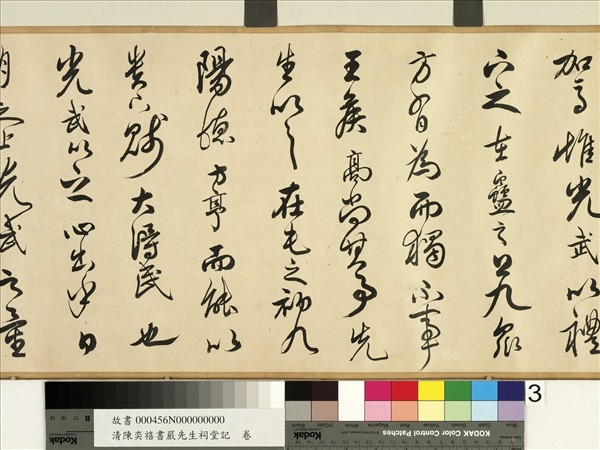 加焉惟光武以禮
下之在蠱之上九眾
方有為而獨不事
王侯高尚其事先
生以之在屯之初九
陽德方亨而能以
貴下賤大得民也
光武以之心出乎日
月之上光武之量
3
故書 000456N000000000
清陳奕禧書嚴先生祠堂記 卷
Kodak
KODAK Color Control Patches
Kodak
Blue
Cyan
Green
Yellow
Red
Magenta
White
Black